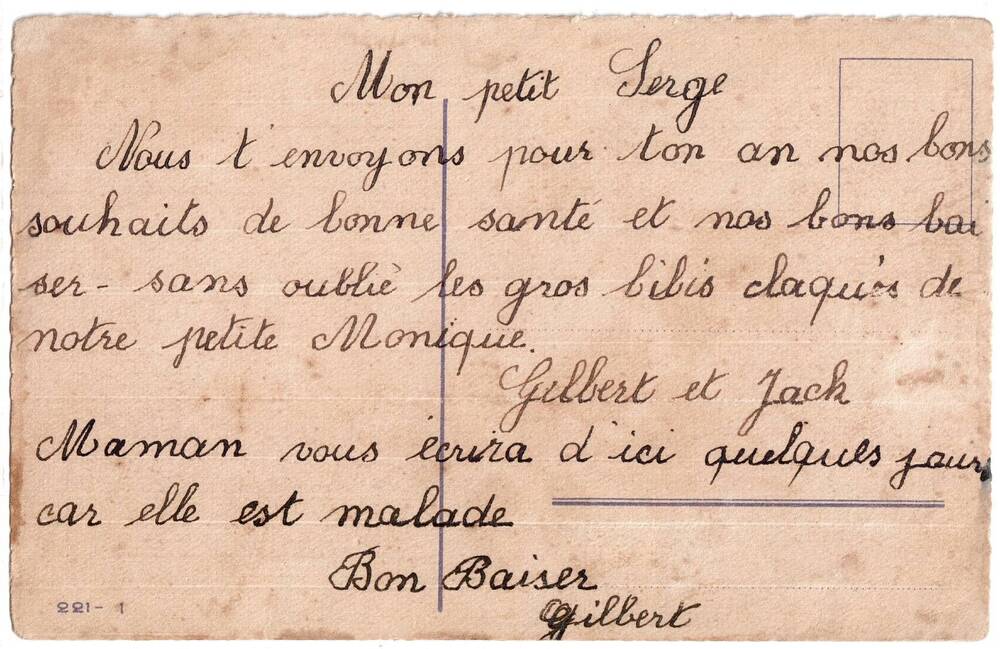 Mon petit Serge
Nous t'envoyons pour ton an nos bons
souhaits de bonne santé et nos bons bai
ser - sans oublié les gros bibis claqués de
notre petite Monique.
Gilbert et Jack
Maman vous écrira d'ici quelques jours
car elle est malade
Bon Baiser
Gilbert
221-1